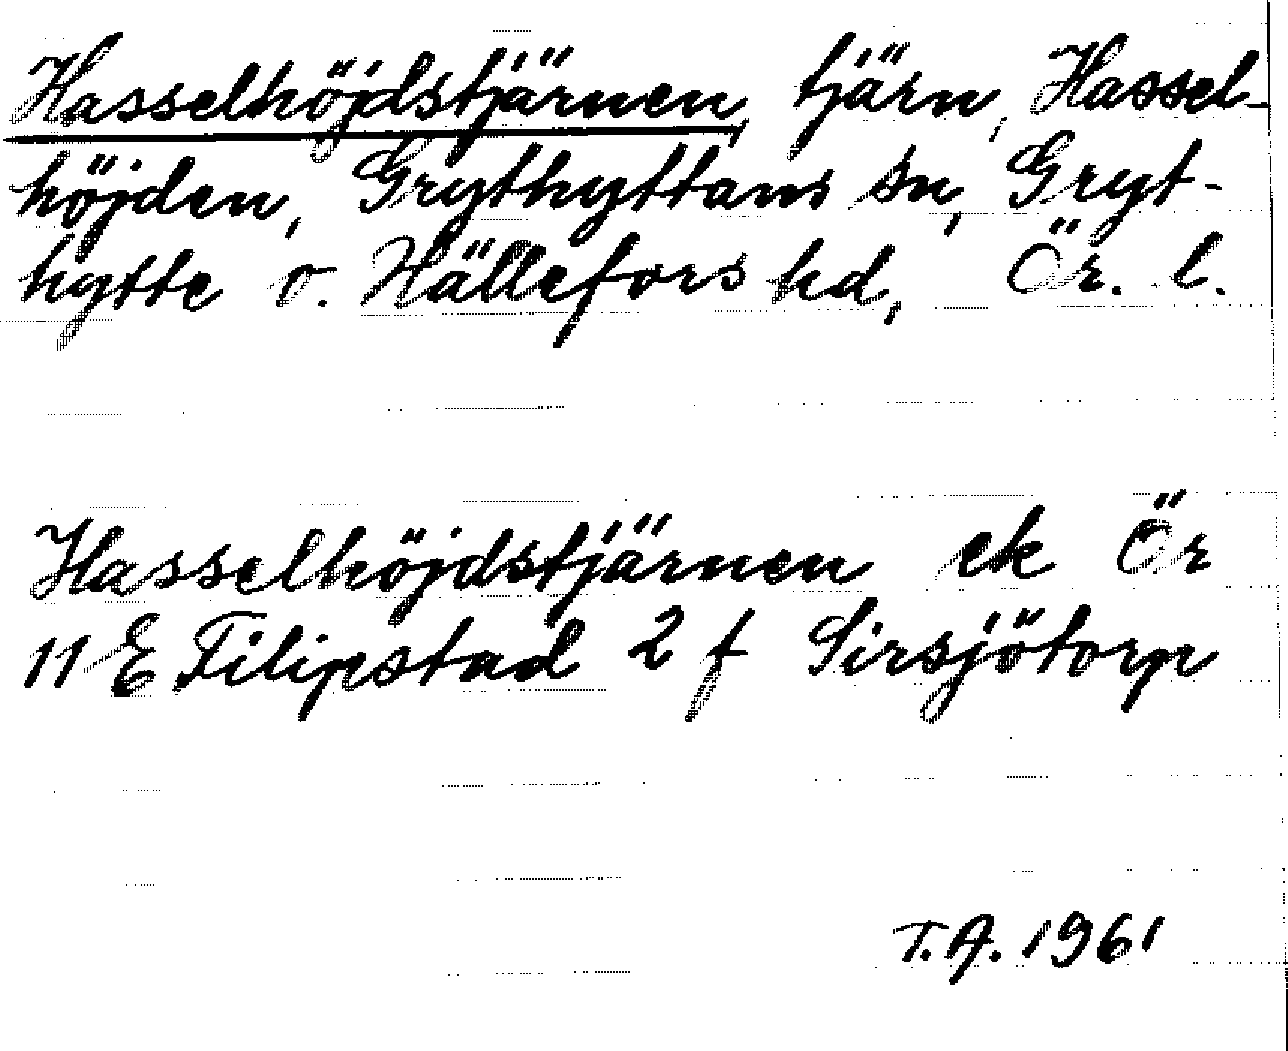 Hasselhöjdstjärnen, tjärn, Hassel-
höjden, Grythyttans sn, Gryt-
hytte o. Hällefors hd, Ör. l.
Hasselhöjdstjärnen ek Ör
11 E Filipstad 2 f Sirsjötorp
T.A. 1961